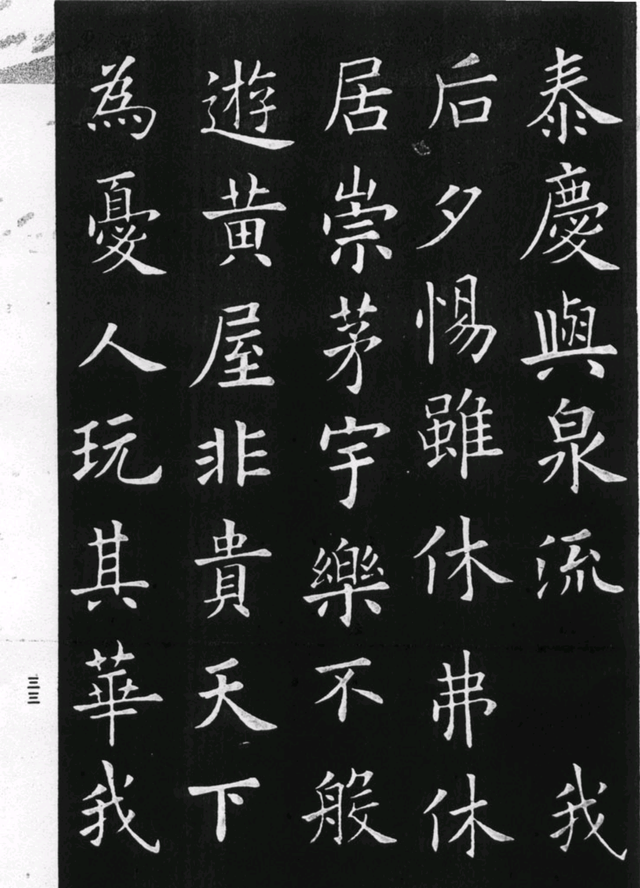 泰慶與泉流我
后夕惕雖休弗休
居崇茅宇樂不般
遊黃屋非貴天下
為憂人玩其華我
三三